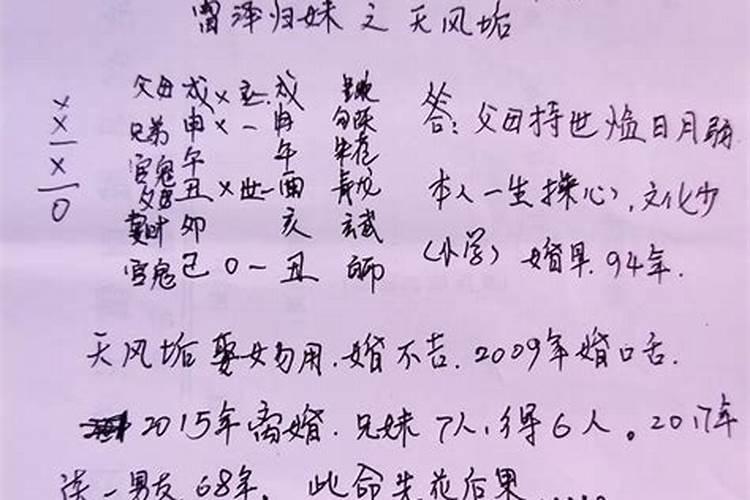 雷泽归妹之天风垢
父母戌乂应戌
兄弟申乂一申 答:父母持世临日月破
官鬼午 午
丑乂世一酉 本人一生操心,文化少
妻财卯 亥 玄武
官鬼巳0一丑 (小学)婚早.94年.
天风垢娶女勿用.婚不吉.2009年婚口舌.
2015年离婚.兄妹7人,得6人。2017年
一男友.68年,此命先花后果......